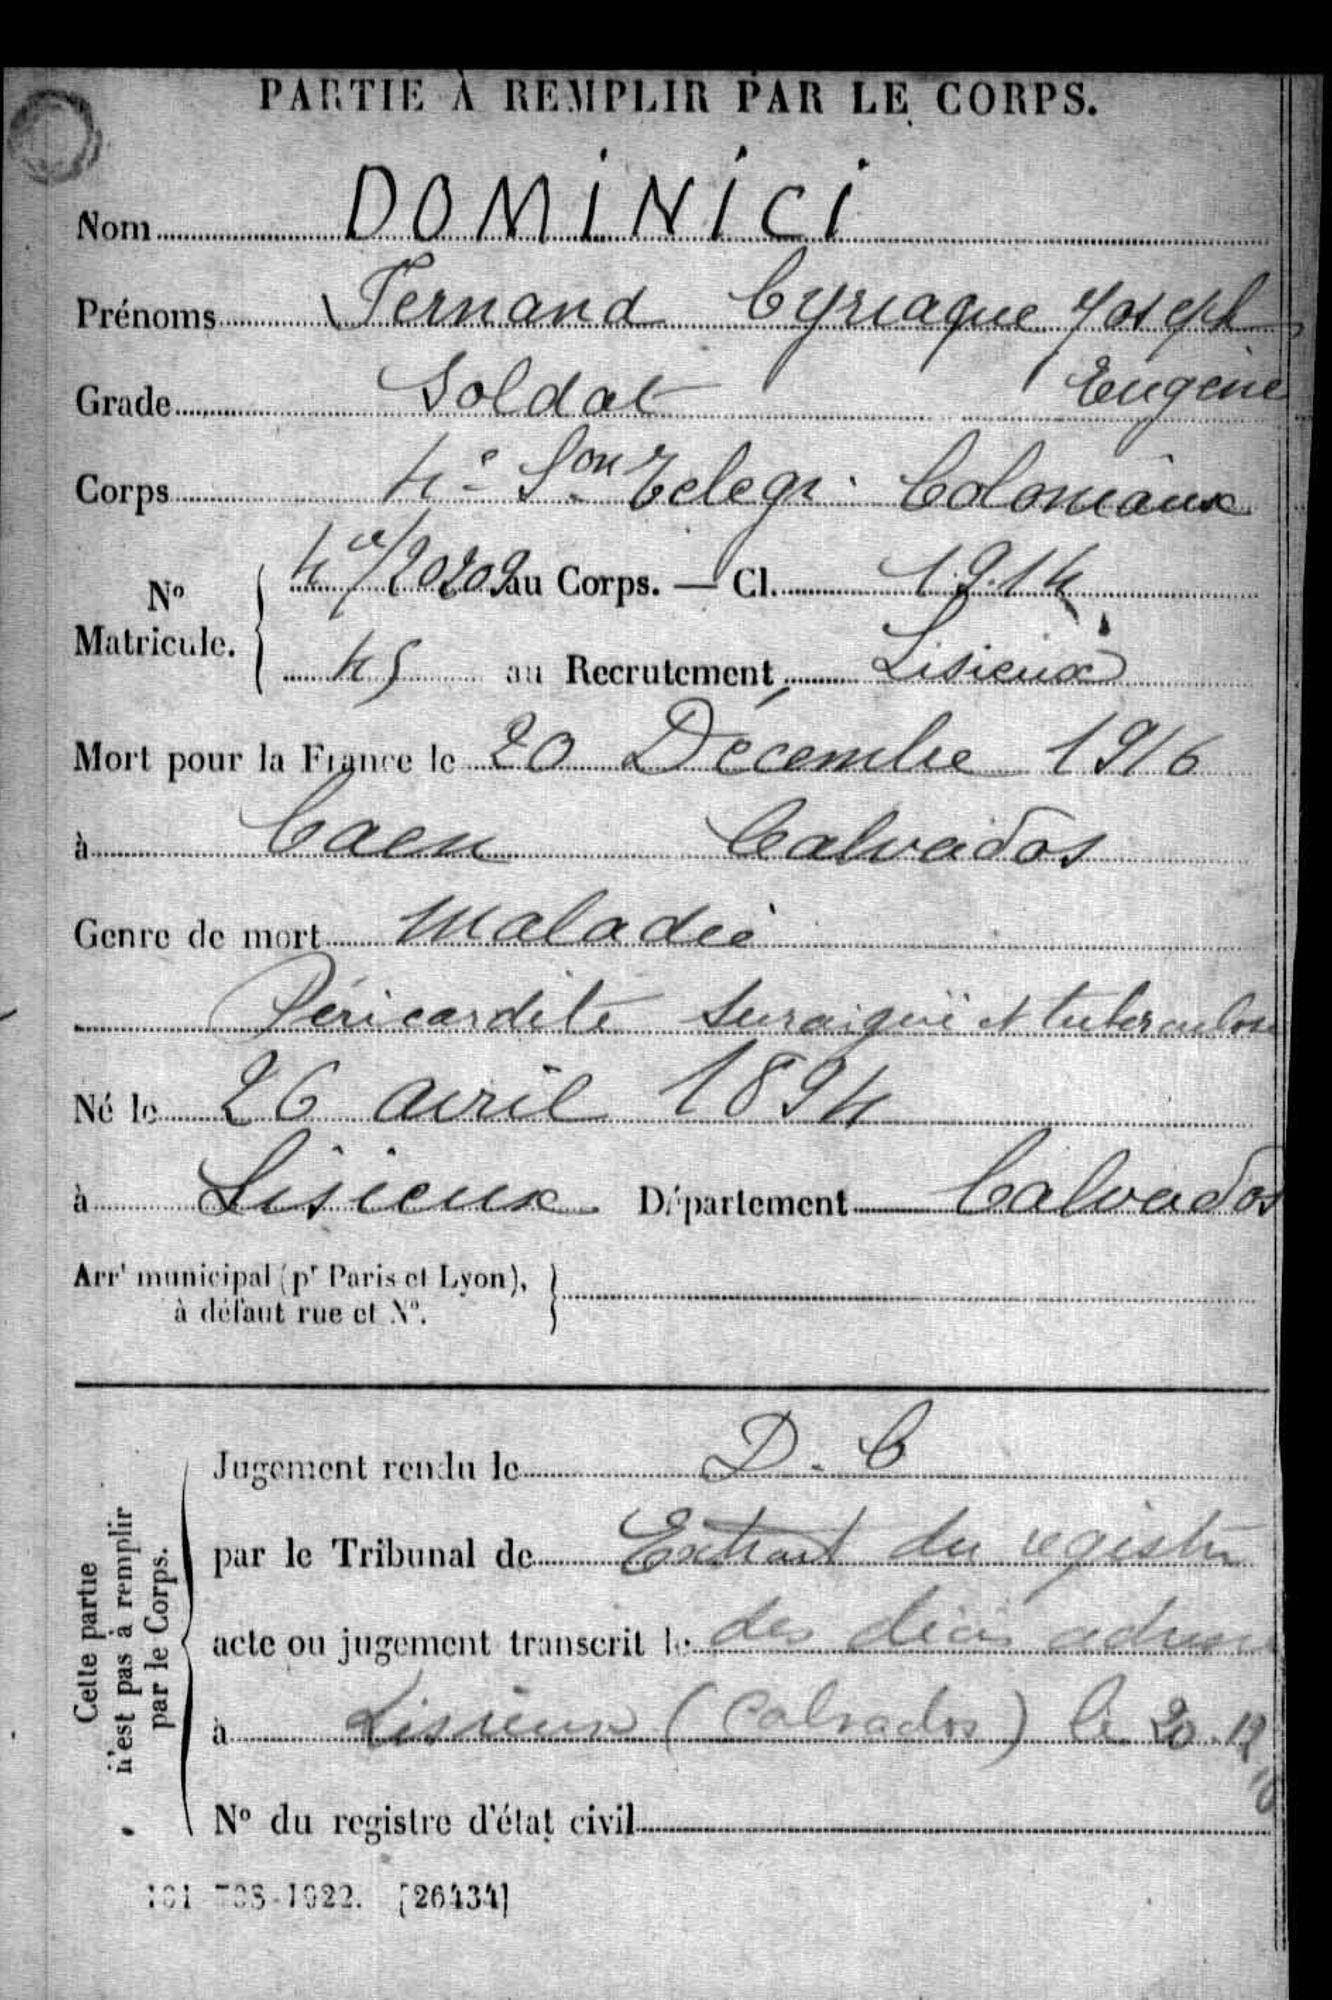 PARTIE À REMPLIR PAR LE CORPS.
Nom DOMINICI
Prénoms Fernand Cyriaque Joseph
Eugène
Grade Soldat
Corps 4e Son Telegr. Coloniaux
No Matricule. 4e/20202 au Corps. — Cl. 1914
45 au Recrutement Lisieux
Mort pour la France le 20 Décembre 1916
à Caen Calvados
Genre de mort maladie
Péricardite suraiguë et tuberculose
Né le 26 avril 1894
à Lisieux. Département Calvados
Arrt municipal (pr Paris et Lyon),
à défaut rue et No.
Cette partie
n'est pas à remplir
par le Corps.
Jugement rendu le D. C
par le Tribunal de Extrait du registre
acte ou jugement transcrit le des décès adressé
à Lisieux (Calvados) le 20.12
16
No du registre d'état civil
-1922. [26434]